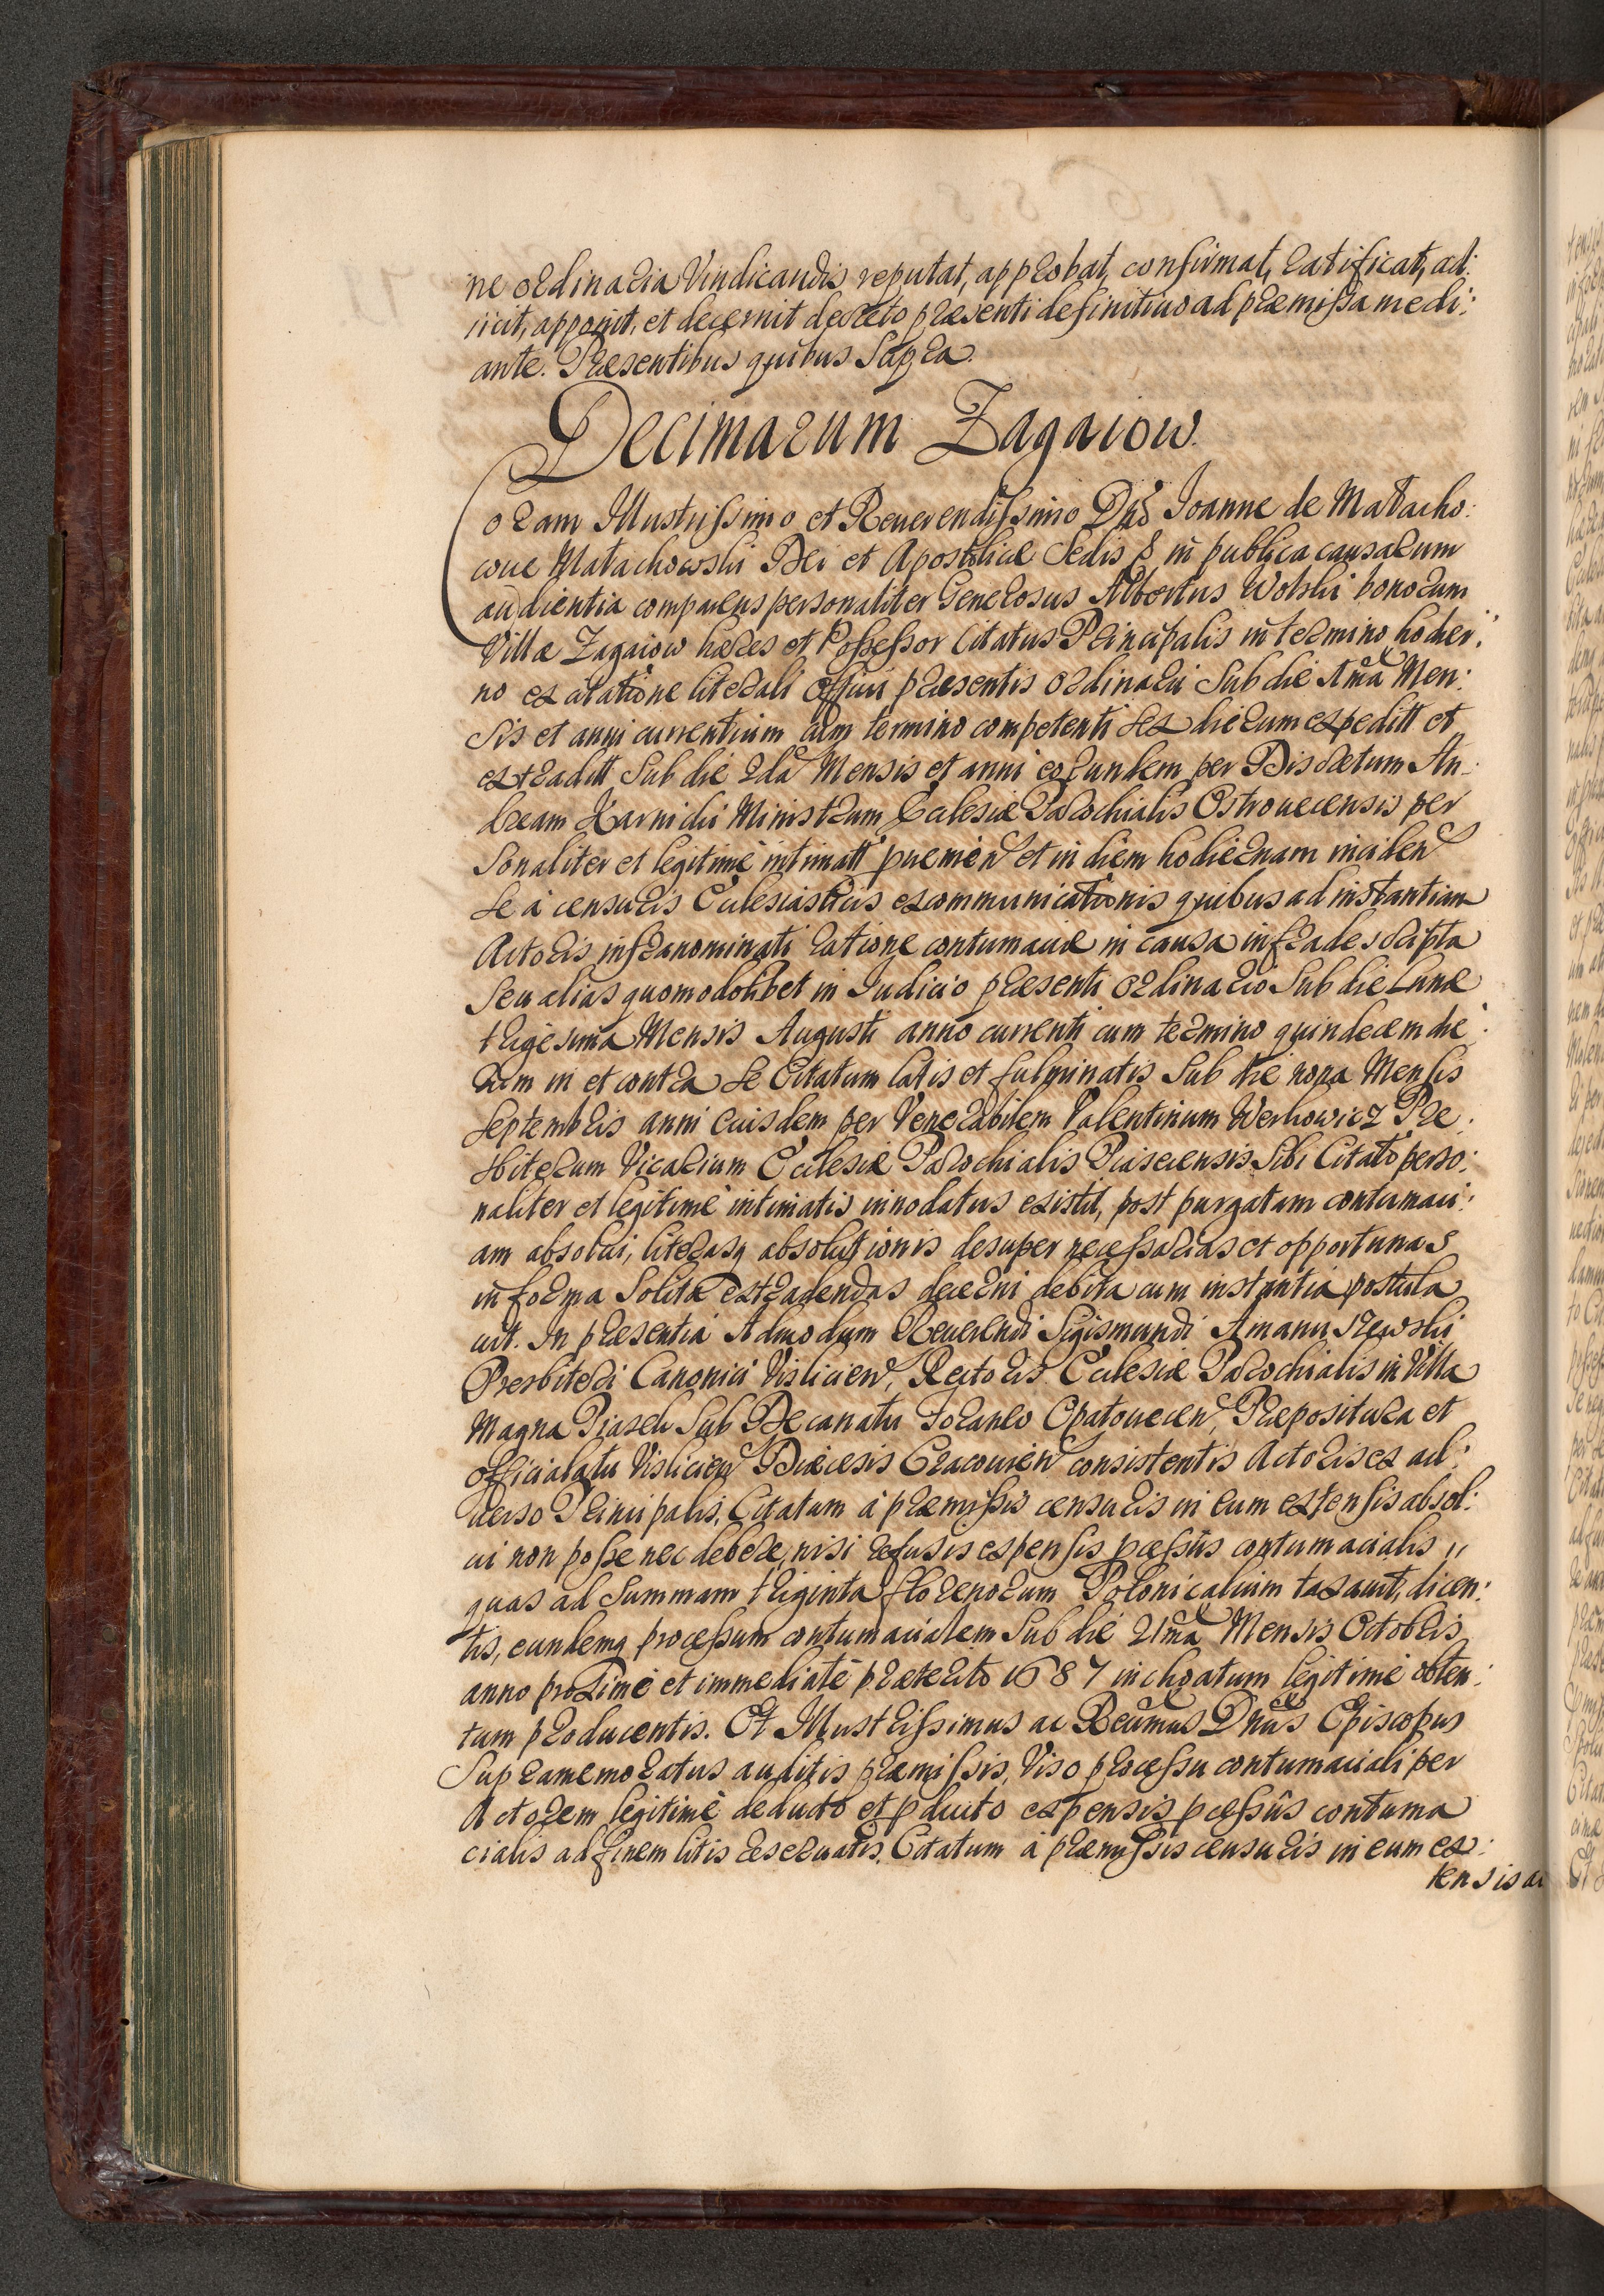 ne ordinaria Vindicandis reputat, approbat, confirmat, ratificat, ad:
iicit, apponit, et decernit decreto præsenti definitiuo ad præmissa medi:
ante. Præsentibus quibus Supra.
Decimarum Zagaiow.
Coram Illustrissimo et Reuerendissimo Dno Joanne de Małacho:
wie Małachowski Dei et Apostolicæ Sedis & in publica causarum
audientia comparens personaliter Generosus Albertus Wolski bonorum
Villæ Zagaiow hæres et Possessor Citatus Principalis in termino hodier:
no ex citatione literali Officii præsentis ordinarii Sub die 1ma Men:
sis et anni currentium cum termino competenti sex dierum expeditt et
extraditt Sub die 2da Mensis et anni eorundem per Discretum An:
dream Karnidii Ministrum Ecclesiæ Parochialis Ostrouecensis per
sonaliter et legitimè intimatt præmen et in diem hodiernam inciden
se à censuris Ecclesiasticis excommunicationis quibus ad instantiam
Actoris infranominati ratione contumaciæ in causa infradescripta
seu alias quomodolibet in Iudicio præsenti ordinario Sub die Lunæ
trigesima Mensis Augusti anno currenti cum termino quindecem die:
rum in et contra se Citatum latis et fulminatis Sub die nona Mensis
Septembris anni eiusdem per Venerabilem Valentinum Werkowicz Præ:
sbiterum Vicarium Ecclesiæ Parochialis Piasecensis Sibi Citato perso:
naliter et legitimè intimatis innodatus existit, post purgatam contumaci:
am absolui, literasq absolutionis desuper necessarias et opportunas
in forma Solita extradendas decerni debita cum instantia postula
uit. In præsentia Admodum Reuerendi Sigismundi Amanuszewski
Presbiteri Canonici Vislicien, Rectoris Ecclesiæ Parochialis in Villa
Magna Piaseh Sub Decanatu foraneo Opatouecen, Præpositura et
officialatu Vislicien Diæcesis Cracouien consistentis Actoris ex ad:
uerso Principalis, Citatum à præmissis censuris in eum extensis absol:
ui non posse nec debere, nisi refusis expensis pcesstis contumacialis
quas ad Summam triginta florenorum Polonicalium taxauit, dicen:
tis, eundemq processum contumacialem Sub die 21ma Mensis Octobris
anno proximè et immediatè præterito 1687 inchoatum legitimè obten:
tum producentis. Et Illustrissimus ac Reumus Dnus Episcopus
Supramemoratus auditis præmissis, Viso processu contumaciali per
Actorem legitimè deducto et pducto expensis pcessus contuma
cialis ad finem litis reseruatis, Citatum à præmissis censuris in eum ex:
tensis ac